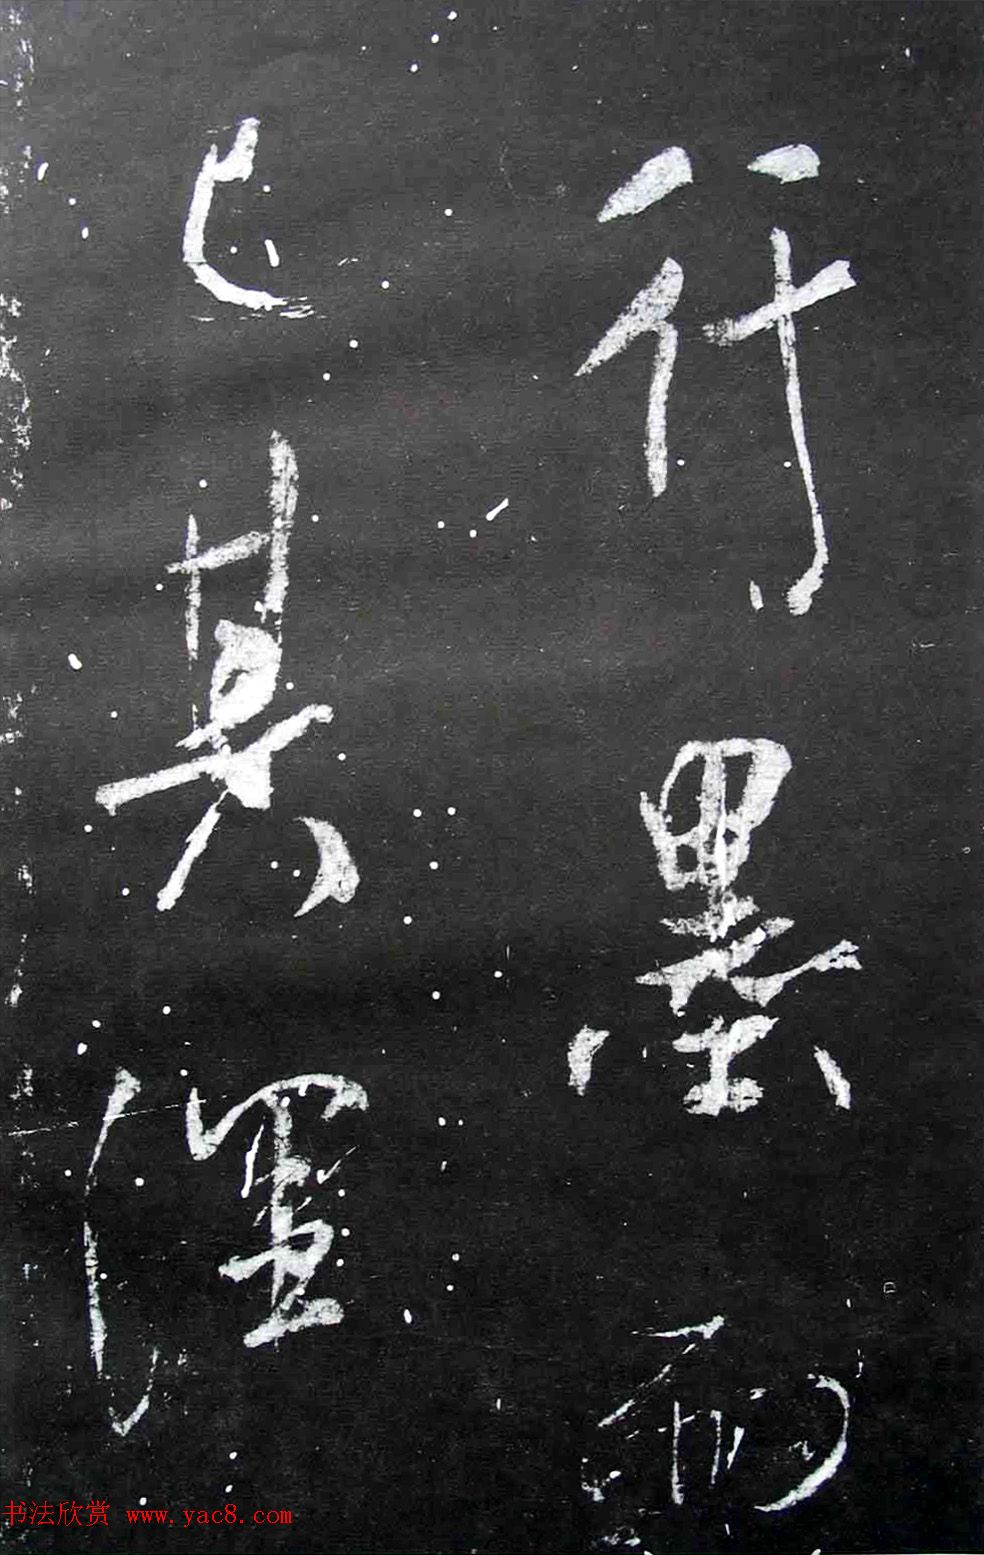 行墨而
已其
书法欣赏 www.yac8.com